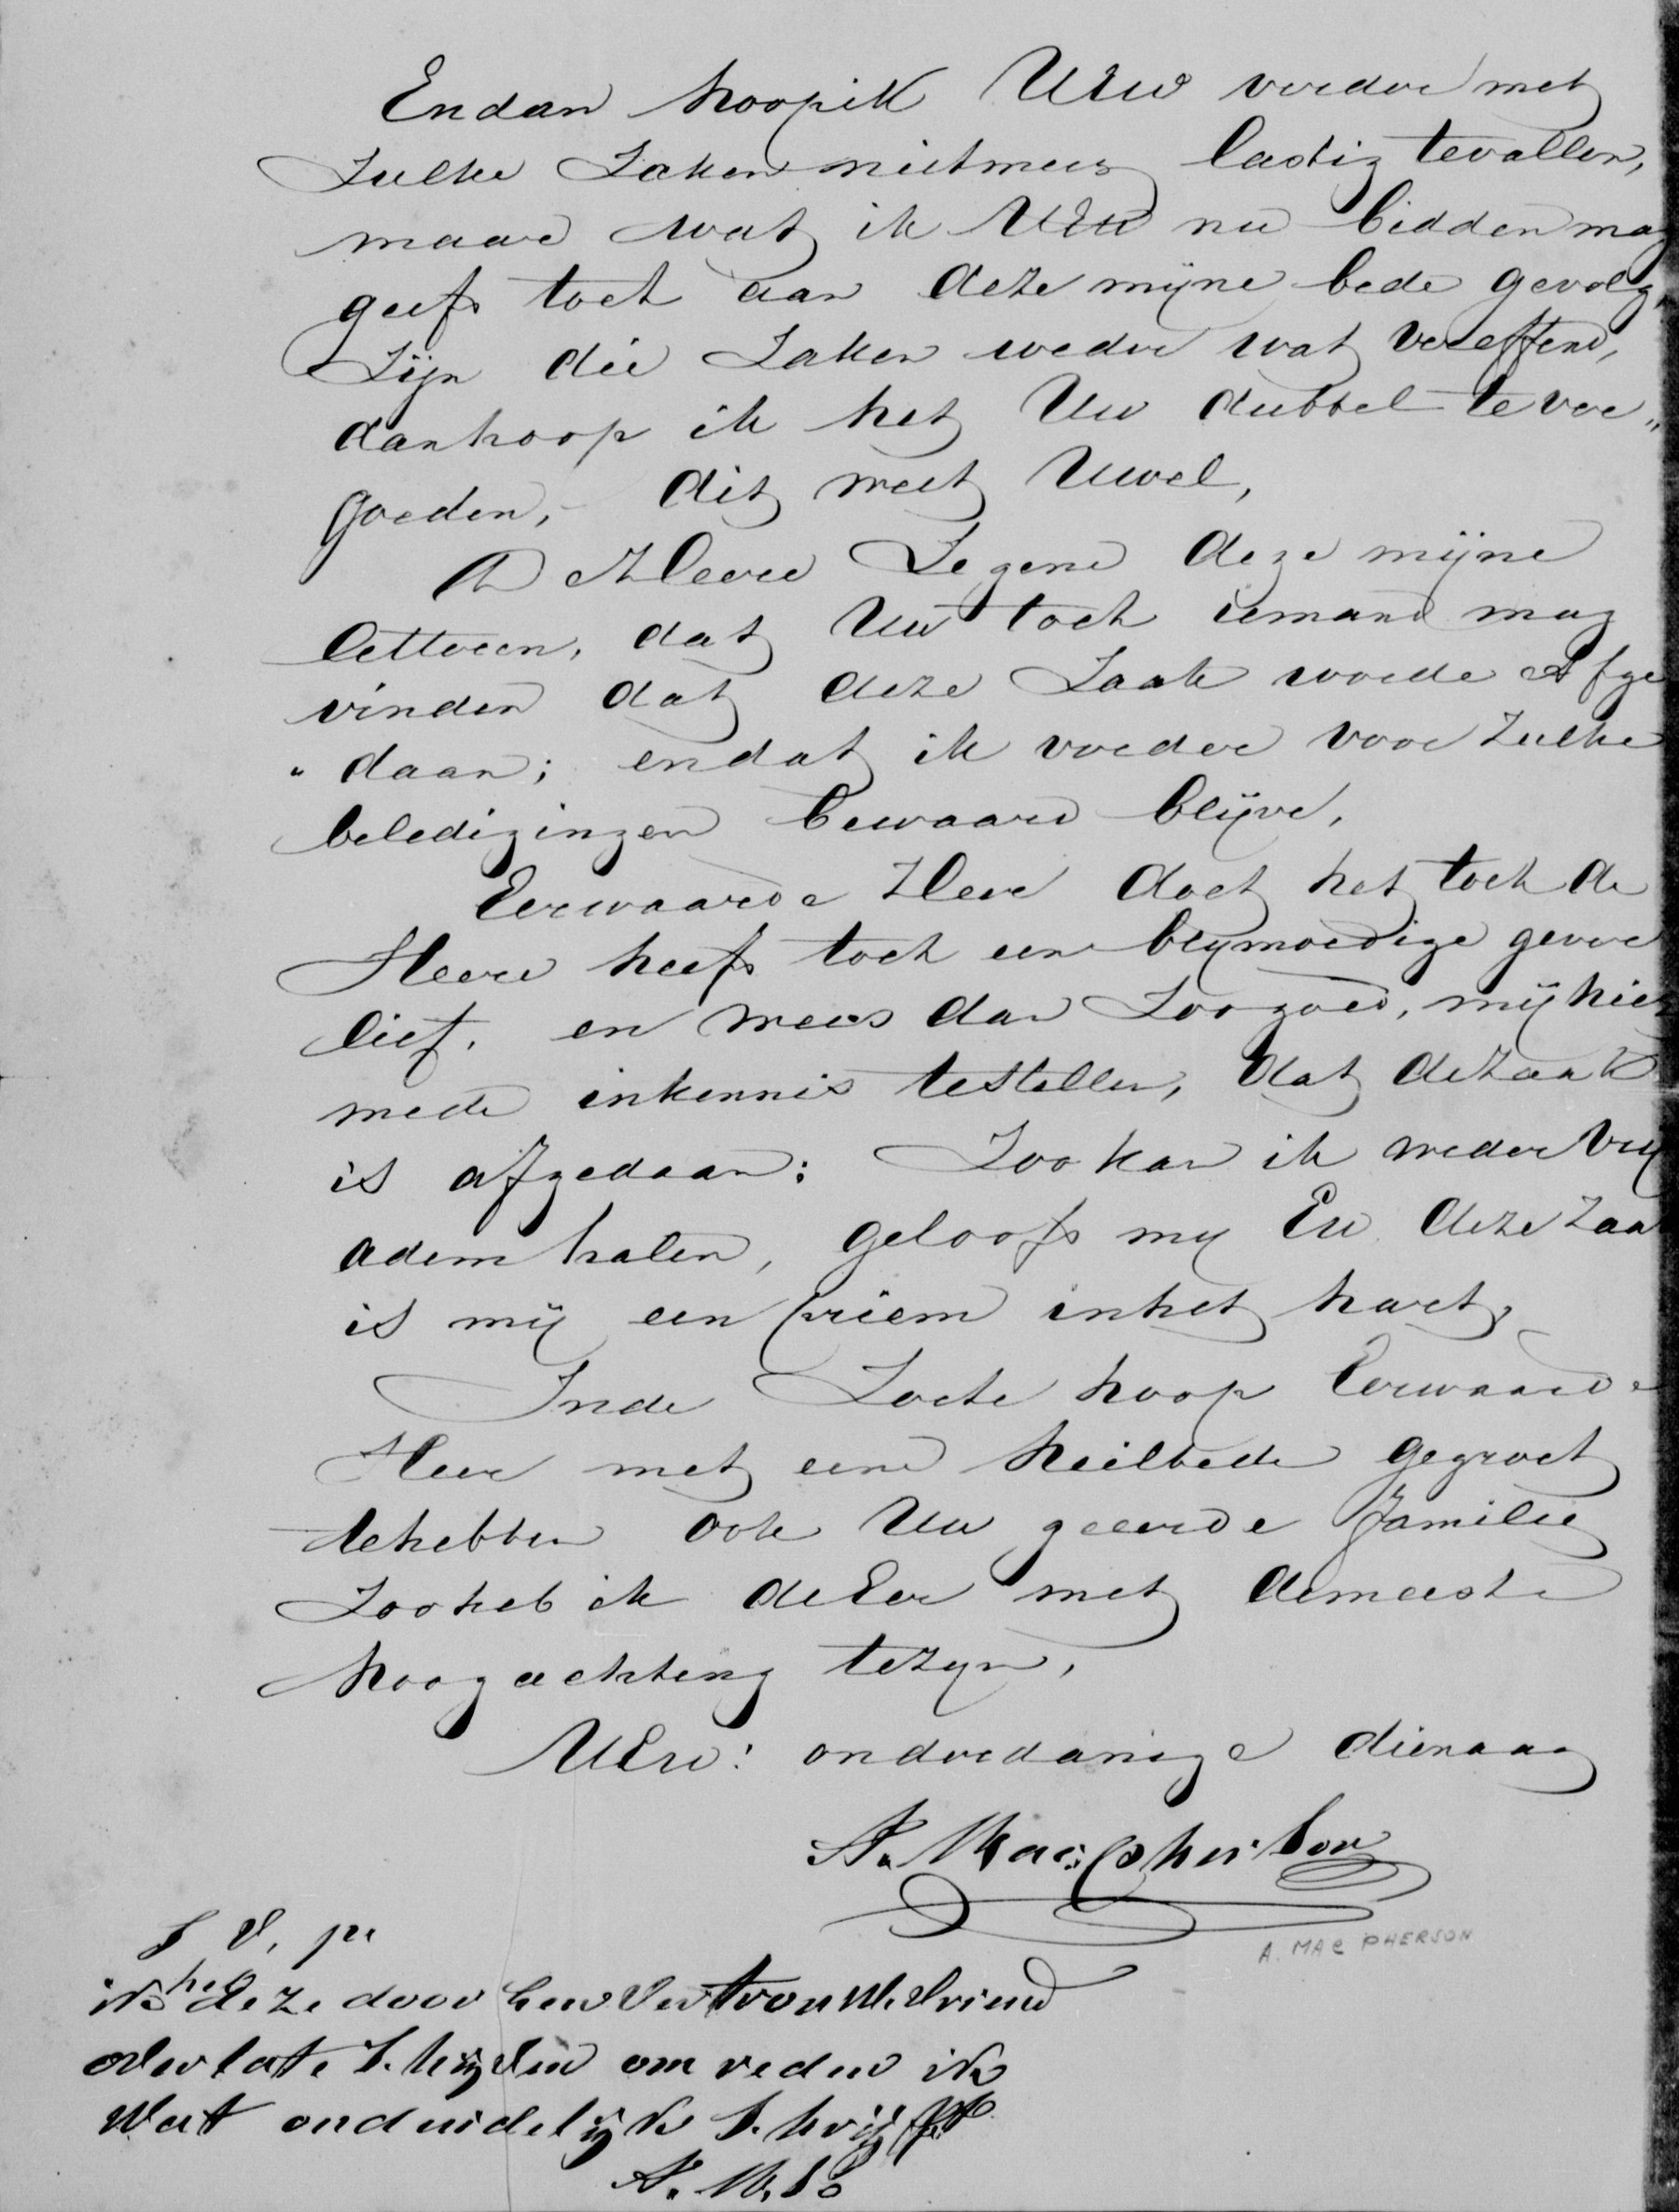 Endan hoop ik UEw verder met
Zulke Zaken nietmeer lastig tevallen,
maar wat ik UEw nu bidden mag
geeft toch aan deze mijne bede gevolg,
Zijn die Zaken weder wat vereffend,
dan hoop ik het Uw dubbel te ver„
goeden, dit weet Uwel,
De Heere Zegene deze mijne
letteren, dat Uw toch iemand mag
vinden dat deze Zaak worde Afge
„daan; endat ik verder voor Zulke
beledigingen bewaard blijve,
Eerwaarde Heer doet het toch de
Heere heeft toch een blymoedige gever
lief. en wees dan Zoo goed, mij hier
mede inkennis testellen, dat dezaak
is afgedaan: Zoo kan ik weder vry
adem halen, geloofs my Ew. deze zaa
is mij een priem inhet hart,
Inde Zoete hoop Eerwaarde
Heer met eene heilbede gegroet
tehebben ook Uw geeerde familie
Zoo heb ik de Eer met demeeste
hoogachting tezyn,
UEw: onderdanige dienaar
A. Mac:Pherson
A. MAC PHERSON
S. V. p.
ik heb deze door een vertrouwd vriend
over late Schrijven om reden ik
wat onduidelijk Schrijf
A. M. P